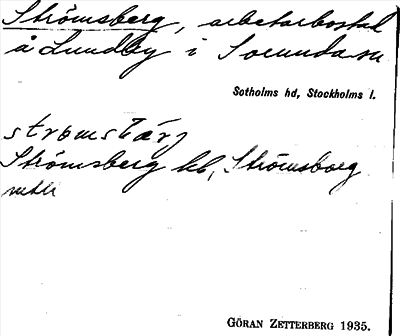 Strömsberg, arbetarbostad
å Lundby i Sorunda sn
Sotholms hd, Stockholms l.
Strömsberg kb, Strömsborg
GÖRAN ZETTERBERG 1935.